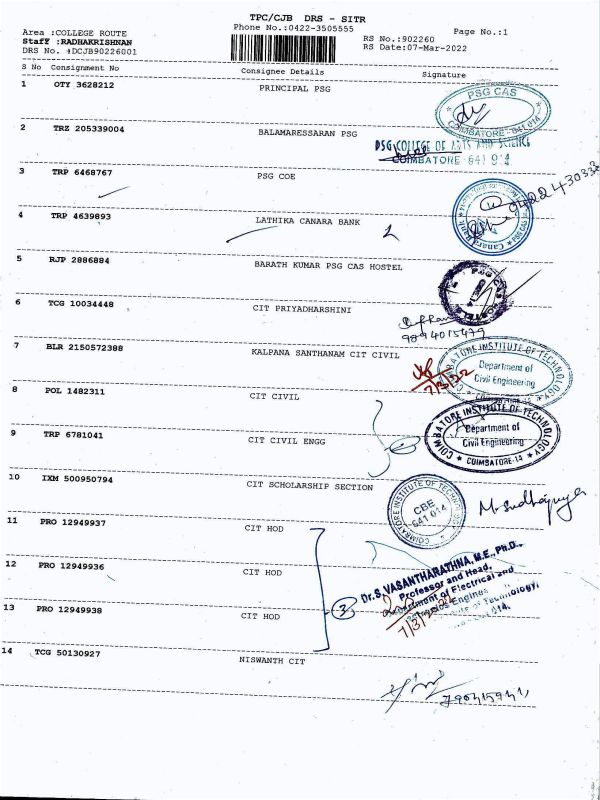 TPC/CJB DRS - SITR
Phone No.:0422-3505555
Area :COLLEGE ROUTE
Staff :RADHAKRISHNAN
DRS No. :DCJB90226001
RS No.:902260
RS Date:07-Mar-2022
Page No.:1
S No Consignment No Consignee Details Signature
1 OTY 3628212 PRINCIPAL PSG
PSG CAS
COIMBATORE-641 014
2 TRZ 205339004 BALAMARESSARAN PSG
PSG COLLEGE OF ARTS AND SCIENCE
COIMBATORE 641 014
3 TRP 6468767 PSG COE
4 TRP 4639893 LATHIKA CANARA BANK
Canara Bank
5 RJP 2886884 BARATH KUMAR PSG CAS HOSTEL
PSG CAS
HOSTEL
6 TCG 10034448 CIT PRIYADHARSHINI
9894015479
7 BLR 2150572388 KALPANA SANTHANAM CIT CIVIL
COIMBATORE INSTITUTE OF TECHNOLOGY
Department of
Civil Engineering
7/3/22
8 POL 1482311 CIT CIVIL
COIMBATORE INSTITUTE OF TECHNOLOGY
Department of
Civil Engineering
COIMBATORE-14
9 TRP 6781041 CIT CIVIL ENGG
10 IXM 500950794 CIT SCHOLARSHIP SECTION
COIMBATORE INSTITUTE OF TECHNOLOGY
CBE
641 014
11 PRO 12949937 CIT HOD
12 PRO 12949936 CIT HOD
13 PRO 12949938 CIT HOD
3
Dr.S.VASANTHARATHNA, M.E., Ph.D.,
Professor and Head,
Department of Electrical and
Institute of Technology,
7/3/22
14 TCG 50130927 NISWANTH CIT